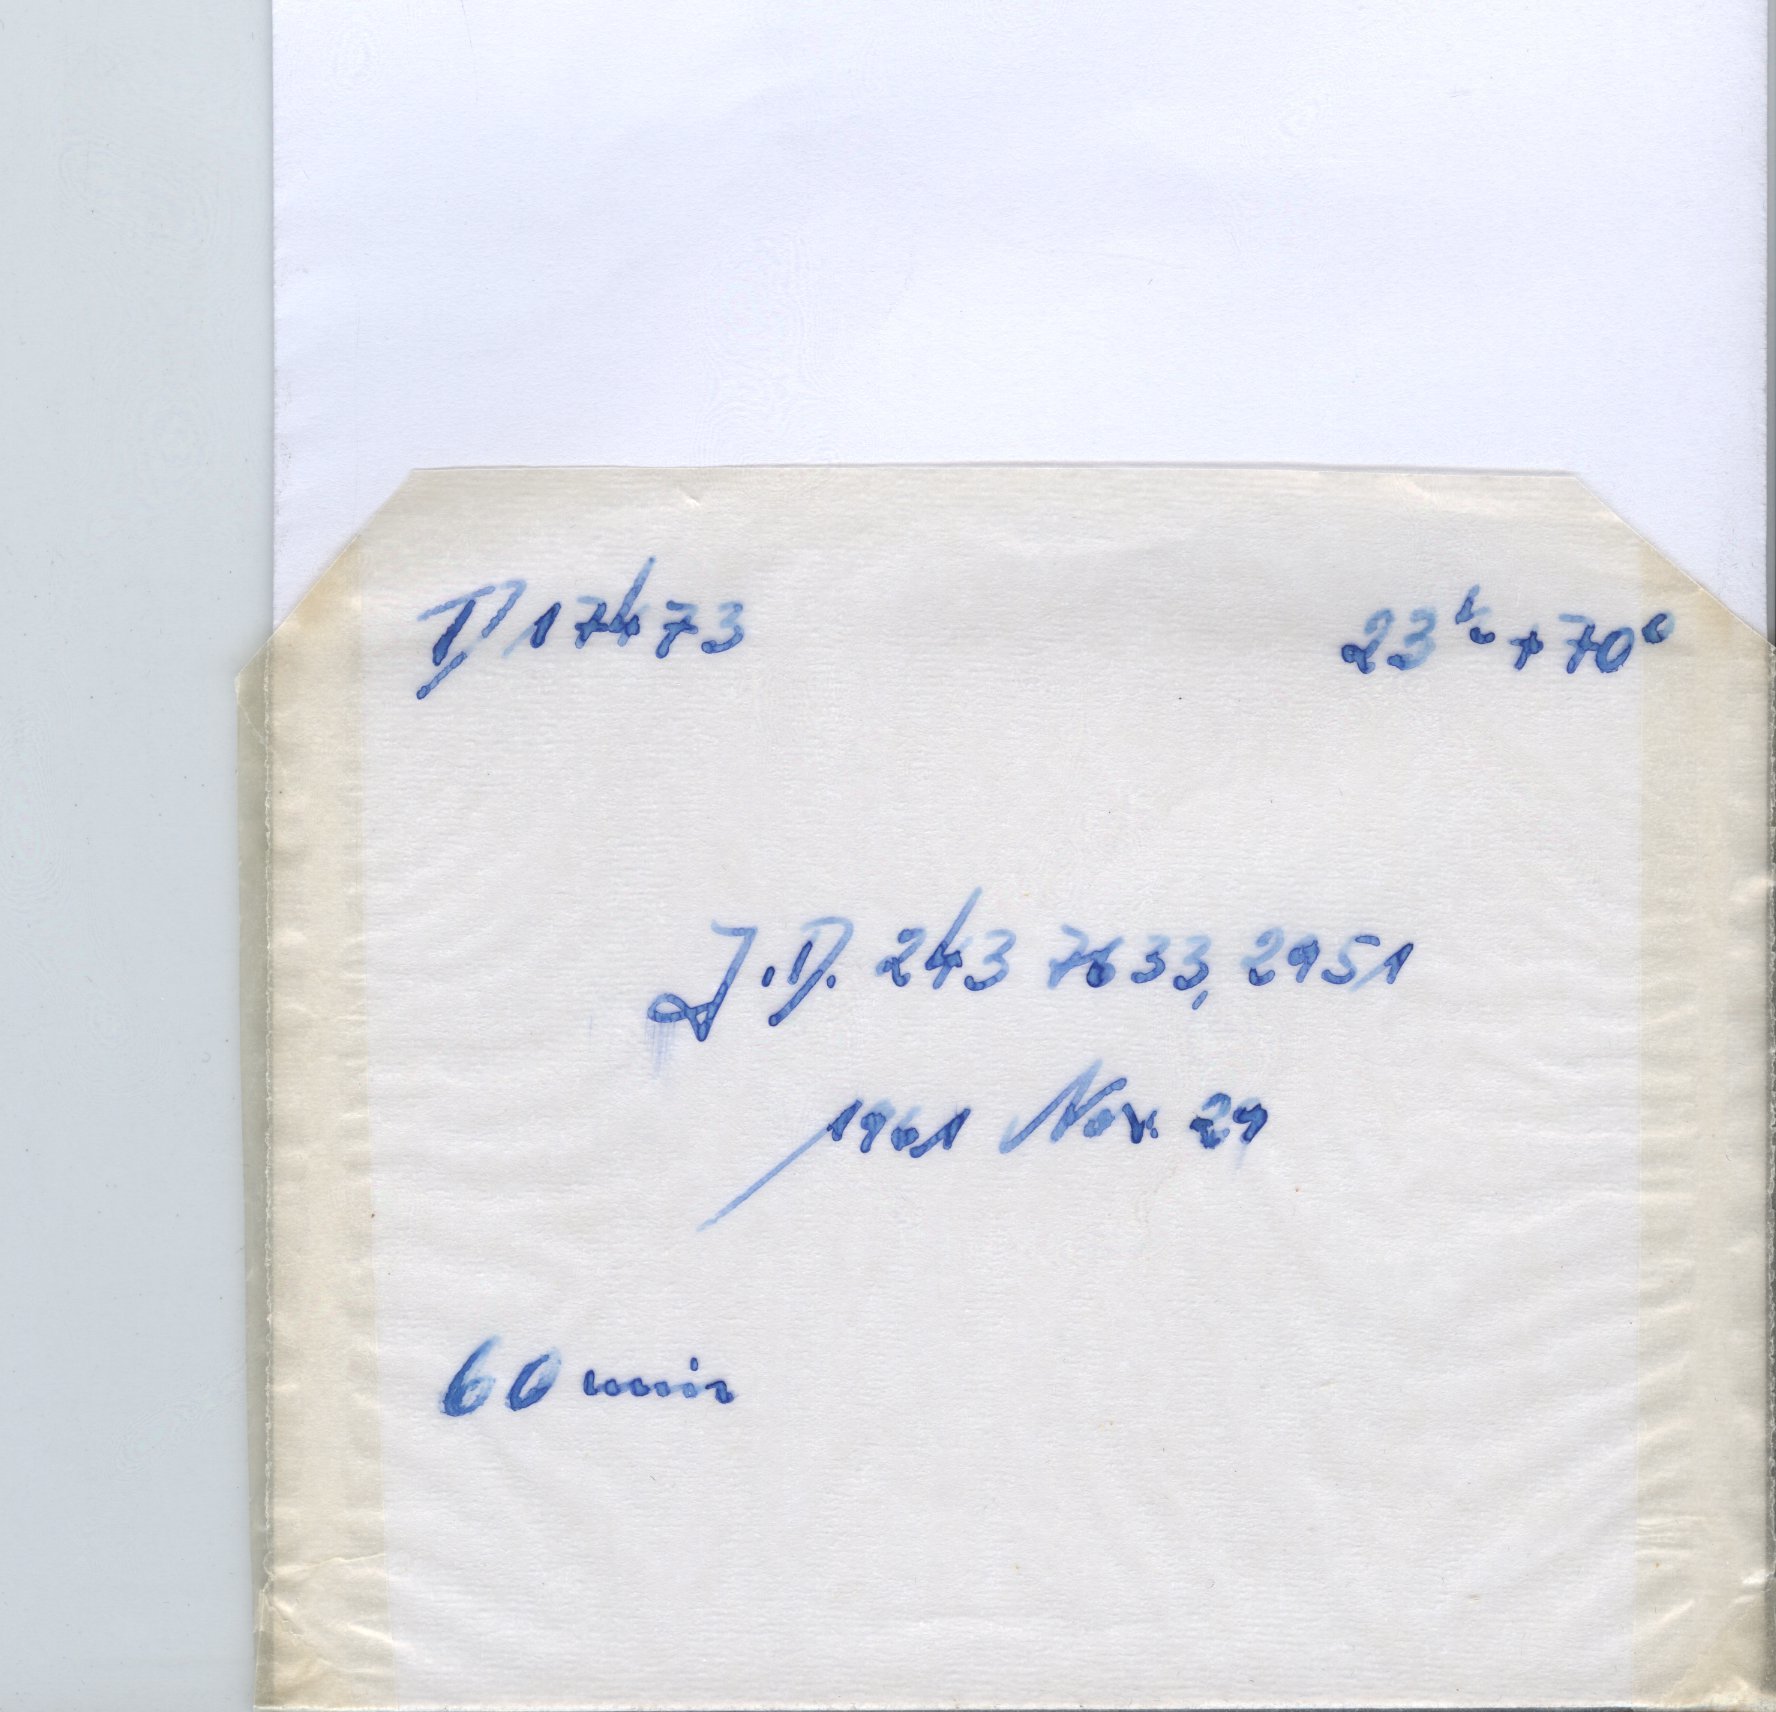 D 17473 23ʰ +70°
J.D. 243 7633, 2951
1961 Nov. 29
60 min